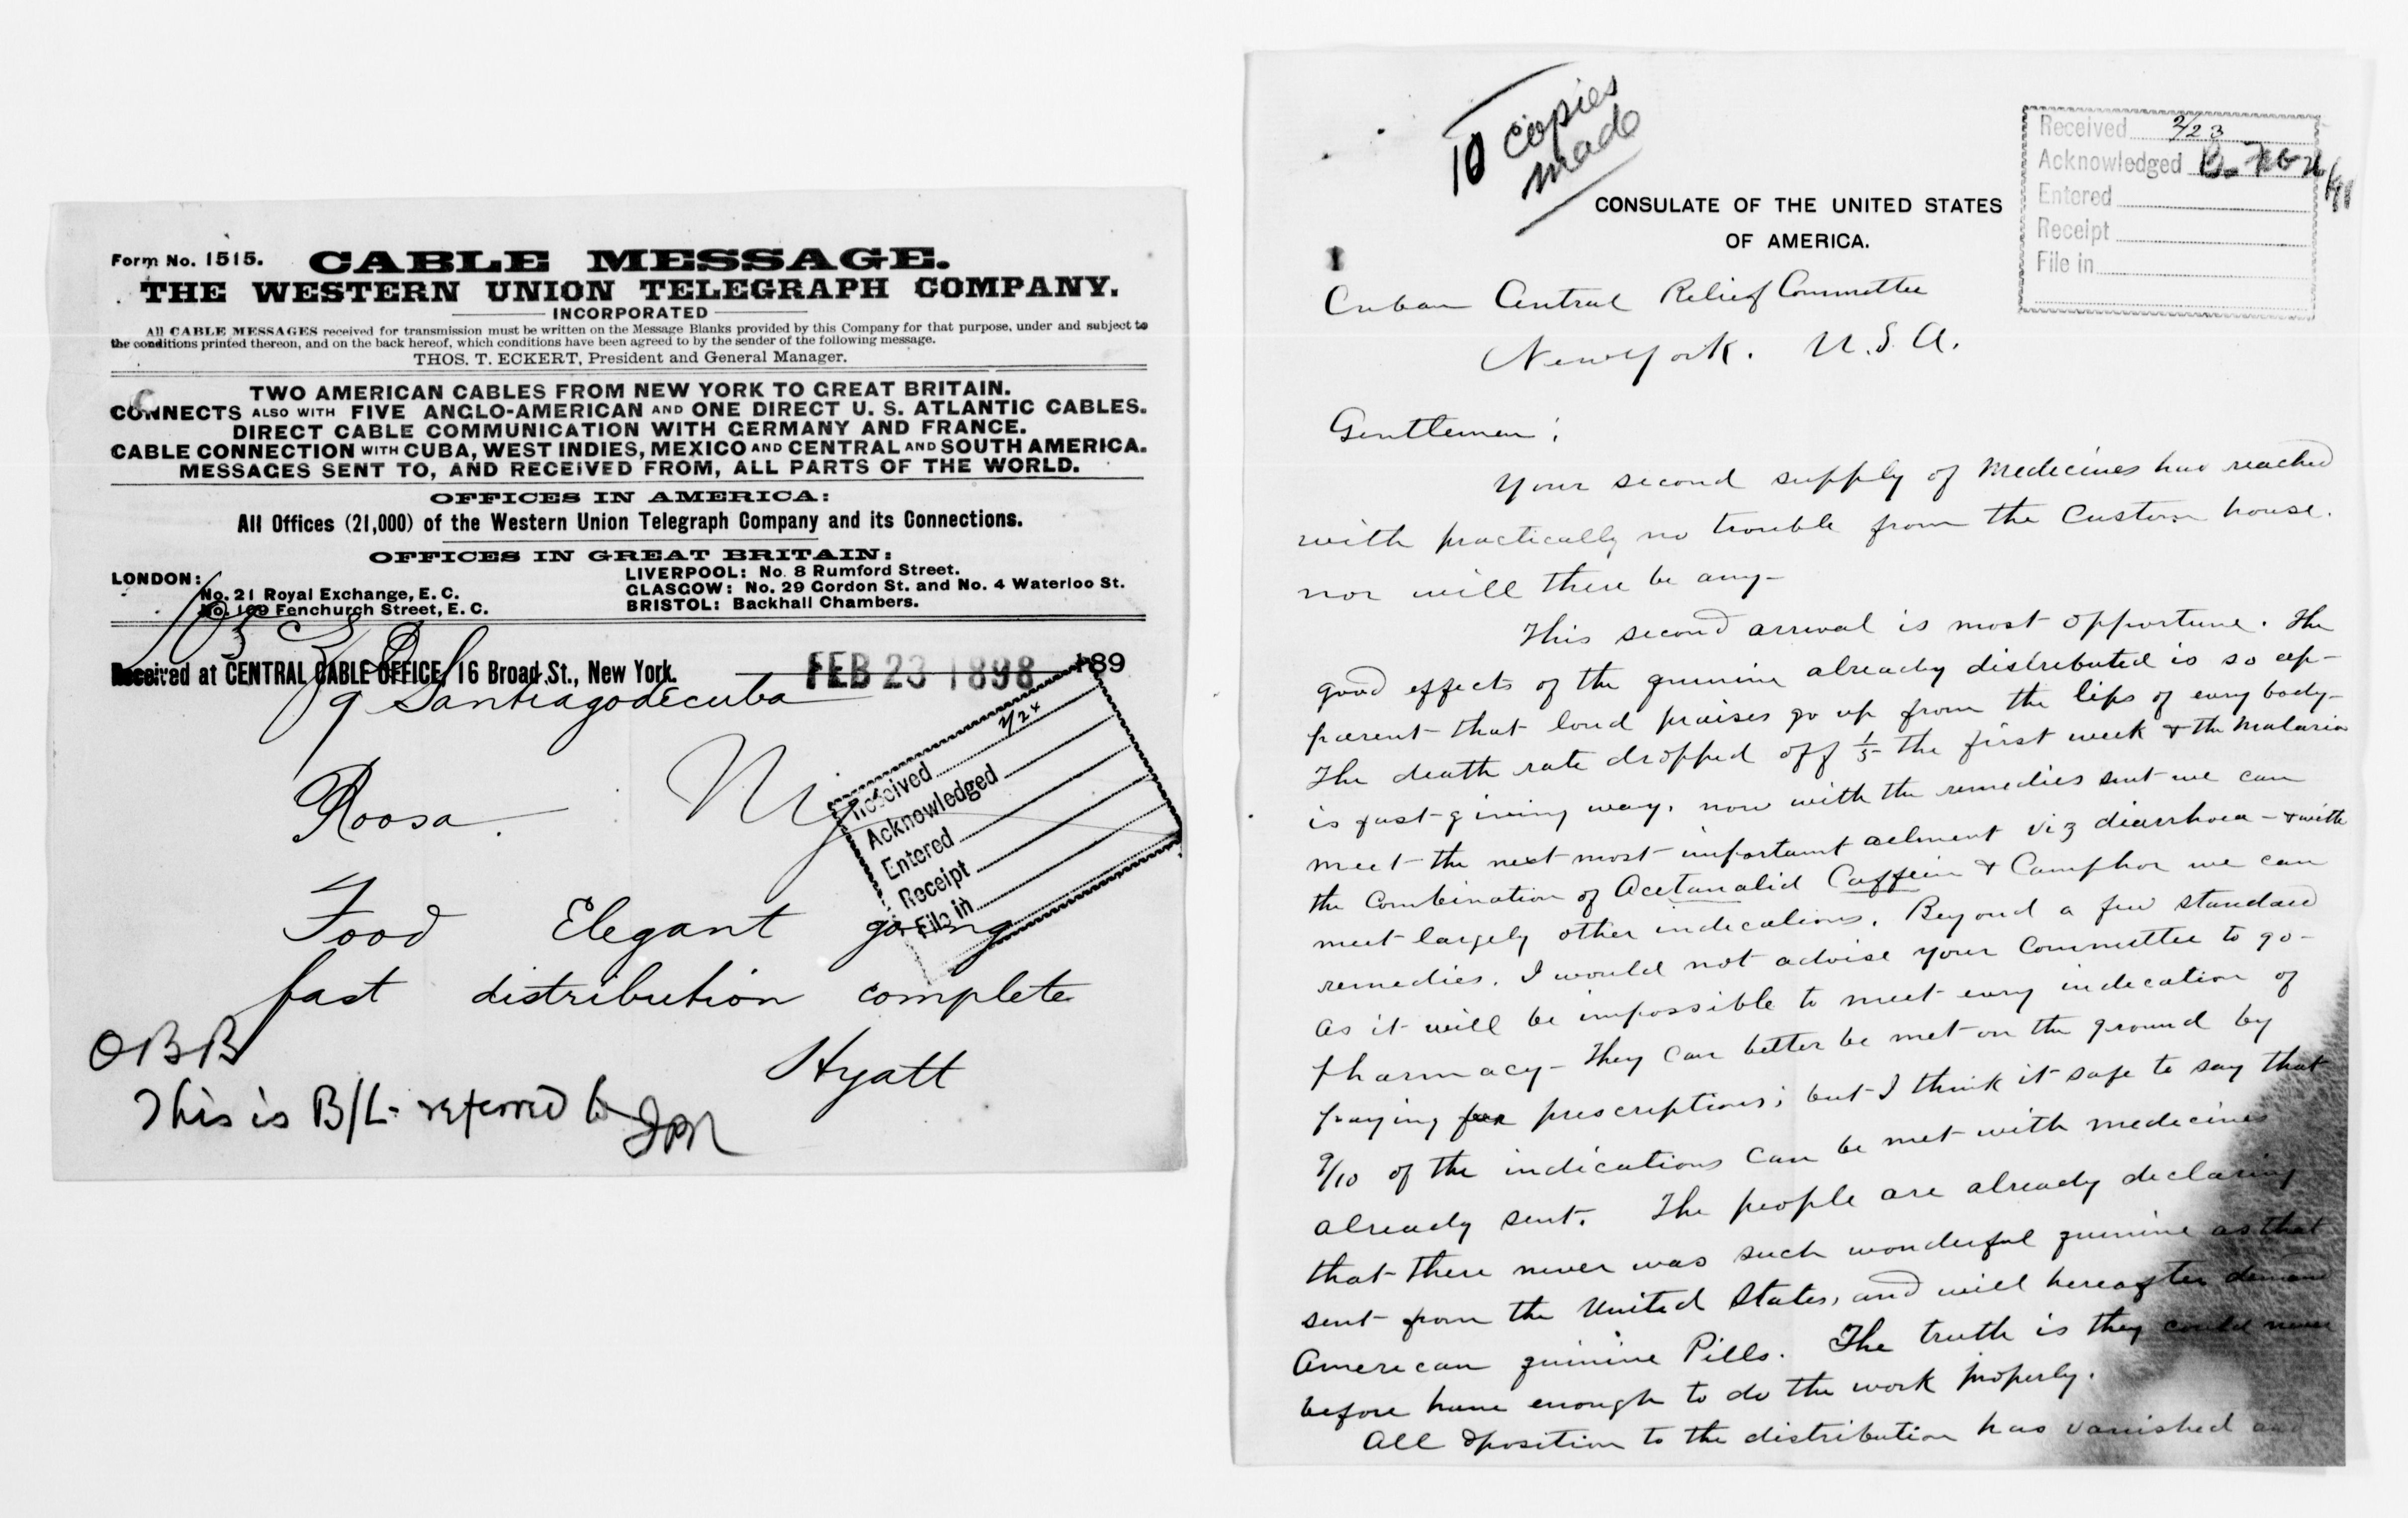 Form No. 1515. CABLE MESSAGE.
THE WESTERN UNION TELEGRAPH COMPANY.
INCORPORATED
All CABLE MESSAGES received for transmission must be written on the Message Blanks provided by this Company for that purpose, under and subject to
the conditions printed thereon, and on the back hereof, which conditions have been agreed to by the sender of the following message.
THOS. T. ECKERT, President and General Manager.
TWO AMERICAN CABLES FROM NEW YORK TO GREAT BRITAIN.
CONNECTS ALSO WITH FIVE ANGLO-AMERICAN AND ONE DIRECT U. S. ATLANTIC CABLES.
DIRECT CABLE COMMUNICATION WITH GERMANY AND FRANCE.
CABLE CONNECTION WITH CUBA, WEST INDIES, MEXICO AND CENTRAL AND SOUTH AMERICA.
MESSAGES SENT TO, AND RECEIVED FROM, ALL PARTS OF THE WORLD.
OFFICES IN AMERICA:
All Offices (21,000) of the Western Union Telegraph Company and its Connections.
OFFICES IN GREAT BRITAIN:
LONDON:
No. 21 Royal Exchange, E. C.
No. 109 Fenchurch Street, E. C.
LIVERPOOL: No. 8 Rumford Street.
GLASGOW: No. 29 Gordon St. and No. 4 Waterloo St.
BRISTOL: Backhall Chambers.
Received at CENTRAL CABLE OFFICE, 16 Broad St., New York. FEB 23 1898 189
9 Santiagodecuba
Received 2/24
Acknowledged
Entered
Receipt
File in
Roosa. Ny
Food Elegant going
fast distribution complete
Hyatt
OBB
This is B/L- referred to
10 copies
made
Received 2/23
Acknowledged
Entered
Receipt
File in
CONSULATE OF THE UNITED STATES
OF AMERICA.
Cuban Central Relief Committee
New York. U.S.A.
Gentlemen;
Your second supply of Medicines has reached
with practically no trouble from the Custom house.
nor will there be any-
This second arrival is most opportune. The
good effects of the quinine already distributed is so ap-
parent that loud praises go up from the lips of every body-
The death rate dropped off 1/5 the first week & the Malaria
is fast giving way. now with the remedies sent we can
meet the next most important ailment viz diarrhoea - & with
the Combination of Acetanalid Caffein & Camphor we can
meet largely other indications. Beyond a few standard
remedies. I would not advise your Committee to go-
as it will be impossible to meet every indication of
pharmacy- They can better be met on the ground by
paying for prescriptions; but I think it safe to say that
9/10 of the indications can be met with medicines
already sent. The people are already declaring
that there never was such wonderful quinine as that
sent from the United States, and will hereafter demand
American quinine Pills. The truth is they could never
before have enough to do the work properly.
All oposition to the distribution has vanished and